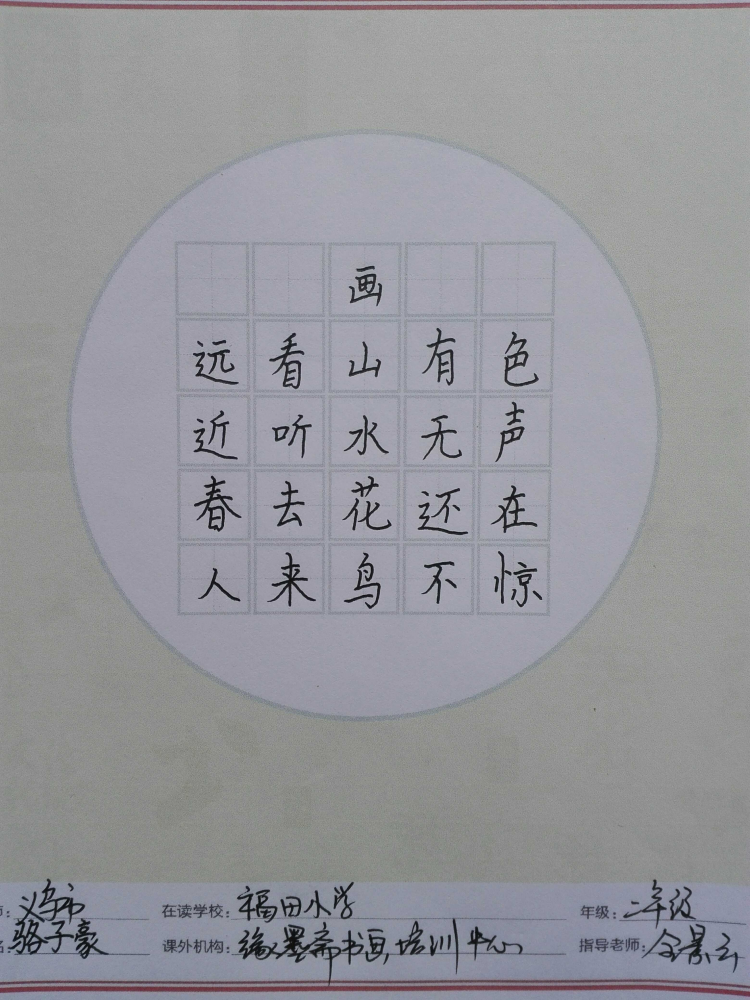 画
远看山有色
近听水无声
春去花还在
人来鸟不惊
义乌市 在读学校：福田小学 年级：二年级
骆子豪 课外机构：墨斋书画培训中心 指导老师：金景云